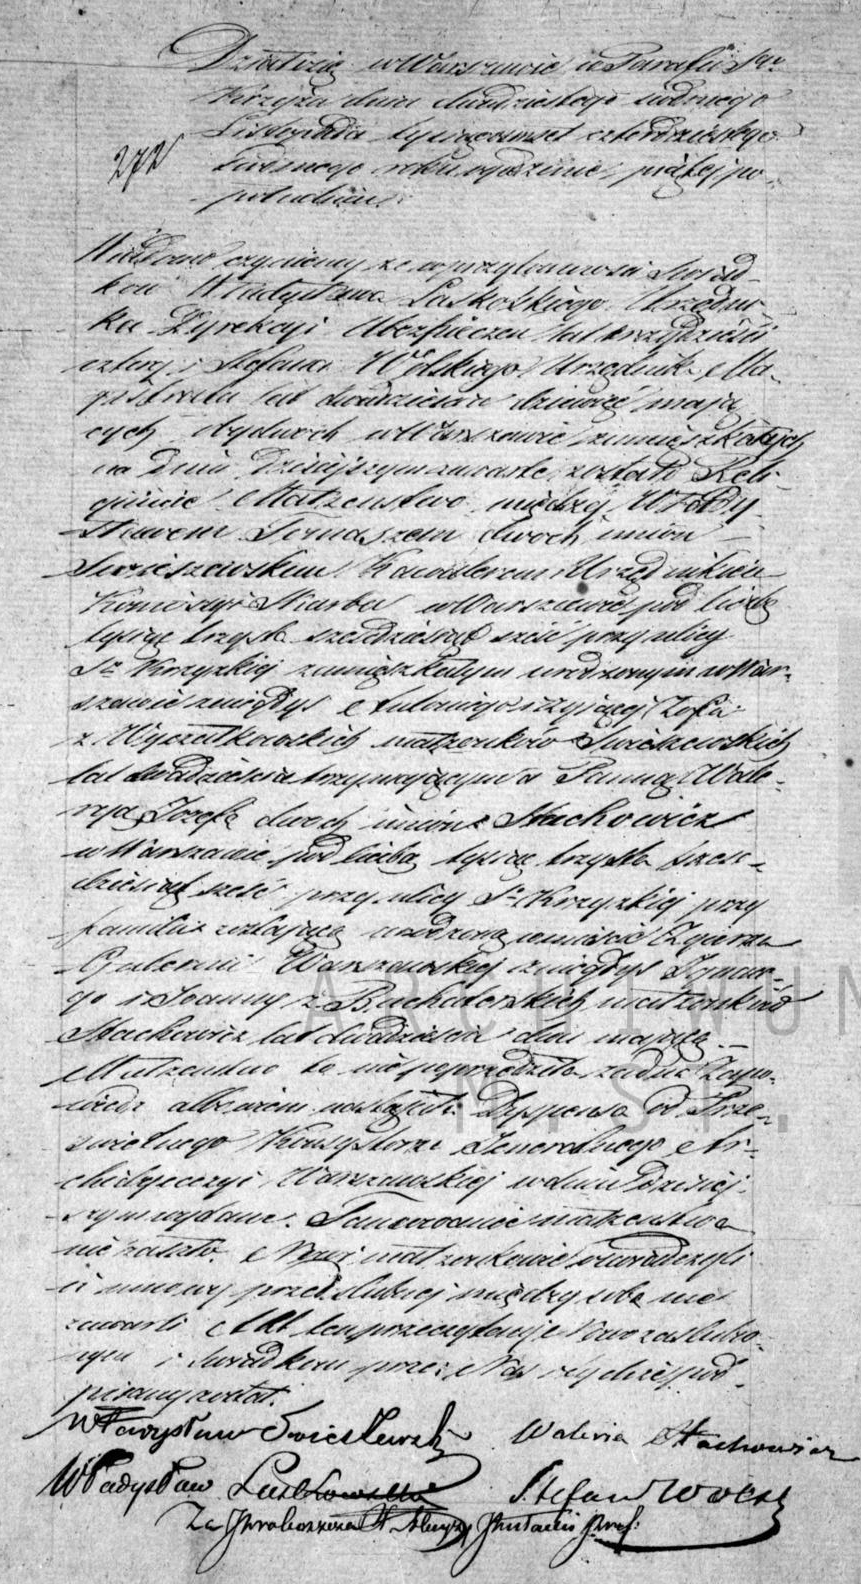 Działo się w Warszawie w Parafii Sgo
Krzyża dnia dwudziestego siódmego
Listopada tysiąc osmset czterdziestego
272
ósmego roku o godzinie piątej po
południu.
Wiadomo czynimy że w przytomności Świad-
ków Władysława Laskowskiego Urzędni-
ka Dyrekcyi Ubezpieczeń lat trzydzieści
cztery i Stefana Wolskiego Urzędnika Ma-
gistratu lat dwadzieścia dziewięć mają-
cych, obydwóch w Warszawie zamieszkałych
na dniu dzisiejszym zawarte zostało Reli-
gijnie Małżeństwo między Włady-
sławem Tomaszem dwóch imion
Świeszewskim Kawalerem Urzędnikiem
Komissyi Skarbu w Warszawie pod liczbą
tysiąc trzysta sześćdziesiąt sześć przy ulicy
Sto Krzyzkiej zamieszkałym urodzonym w War-
szawie z niegdyś Antoniego i żyjącej Zofii
z Wyczałkowskich małżonków Świeszewskich
lat dwadzieścia trzy mającym a Panną Wale-
ryą Józefą dwóch imion Stachowicz
w Warszawie pod liczbą tysiąc trzysta sześć-
dziesiąt sześć przy ulicy Sto Krzyzkiej przy
familii zostającą urodzoną w mieście Zgierzu
Gubernii Warszawskiej z niegdyś Ignace-
go i Joanny z małżonków
Stachowicz lat dwadzieścia dwa mającą.—
Małżeństwo to nie poprzedziła żadna Zapo-
wiedź albowiem nastąpiła Dyspensa od Prze-
świetnego Konsystorza Jeneralnego Ar-
chidyecezyi Warszawskiej w dniu dzisiej-
szym wydane. Tamowanie małżeństwa
nie zaszło. Nowi małżonkowie oświadczyli
iż umowy przedślubnej między sobą nie
zawarli Akt ten przeczytany Nowozaślubio-
nym i świadkom przez Nas i tychże pod-
pisany został.
Władysław Świeszewski Waleria Stachowicz
Władysław Laskowski Stefan Wolski
Za Proboszcza